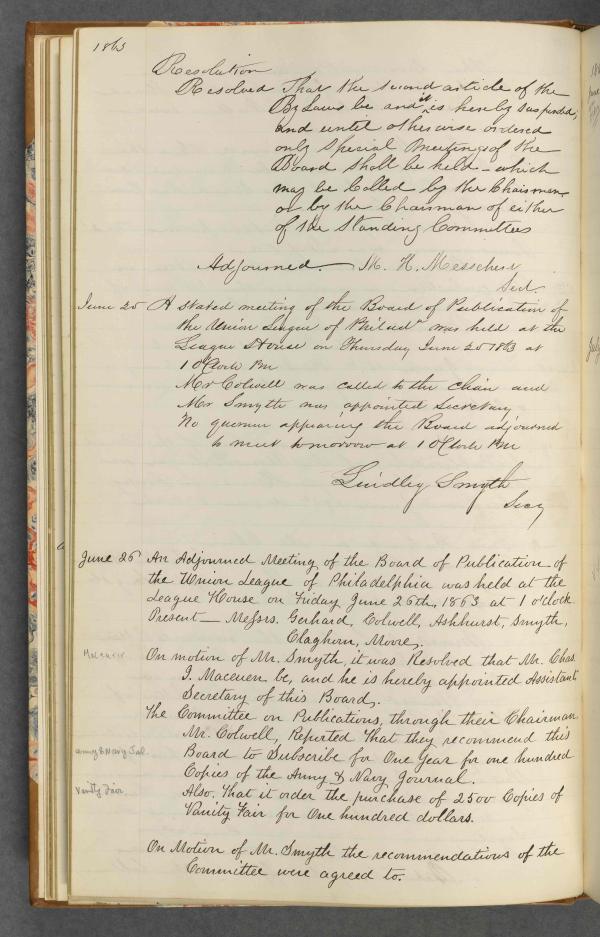 1863
Resolution
Resolved That the second article of the
By Laws be and it is hereby suspended,
and until otherwise ordered
only Special Meetings of the
Board shall be held - which
may be Called by the Chairman
or by the Chairman of either
of the Standing Committees
Adjourned. M. H. Messchert
Sec.
June 25 A stated meeting of the Board of Publication of
the Union League of Philad<sup>a</sup> was held at the
League House on Thursday June 25 1863 at
1 O'Clock PM
Mr Colwell was called to the chair and
Mr Smyth was appointed Secretary
No quorum appearing the Board adjourned
to meet tomorrow at 1 O'Clock PM
Lindley Smyth
Secy
June 26 An Adjourned Meeting of the Board of Publication of
the Union League of Philadelphia was held at the
League House on Friday June 26th, 1863 at 1 o'Clock
Present — Messrs. Gerhard, Colwell, Ashhurst, Smyth,
Claghorn, Moore,
Maceuen On motion of Mr. Smyth, it was Resolved that Mr. Chas
I. Maceuen be, and he is hereby appointed Assistant
Secretary of this Board.
The Committee on Publications, through their Chairman
Mr. Colwell, Reported That they recommend this
Army & Navy Jal. Board to Subscribe for One Year for one hundred
Copies of the Army & Navy Journal.
Vanity Fair Also, That it order the purchase of 2500 Copies of
Vanity Fair for One hundred dollars.
On Motion of Mr. Smyth the recommendations of the
Committee were agreed to.